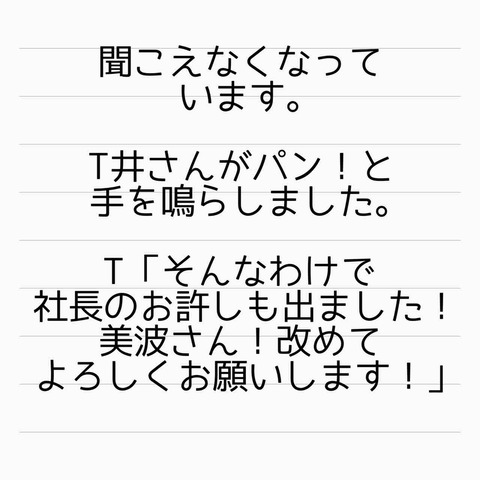 聞こえなくなって
います。
T井さんがパン！と
手を鳴らしました。
T「そんなわけで
社長のお許しも出ました！
美波さん！改めて
よろしくお願いします！」